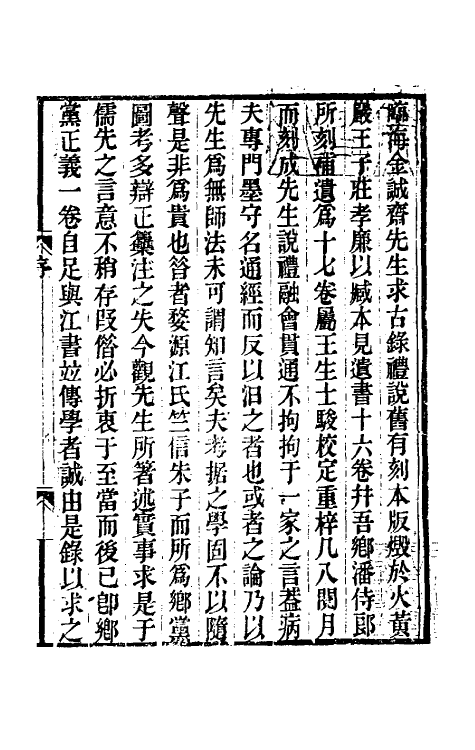 臨海金誠齋先生求古錄禮說舊有刻本版燬於火黃
巖王子莊孝廉以臧本見遺書十六卷幷吾鄉潘侍郎
所刻補遺為十七卷屬王生士駿校定重梓凡八閱月
而刻成先生說禮融會貫通不拘拘于一家之言葢病
夫專門墨守名通經而反以汩之者也或者之論乃以
先生爲無師法未可謂知言矣夫考据之學固不以隨
聲是非爲貴也昝者婺源江氏竺信朱子而所爲鄉黨
圖考多辯正集注之失今觀先生所著述實事求是于
儒先之言意不稍存叚俗必折衷于至當而後已卽鄉
黨正義一卷自足與江書竝傳學者誠由是錄以求之
序